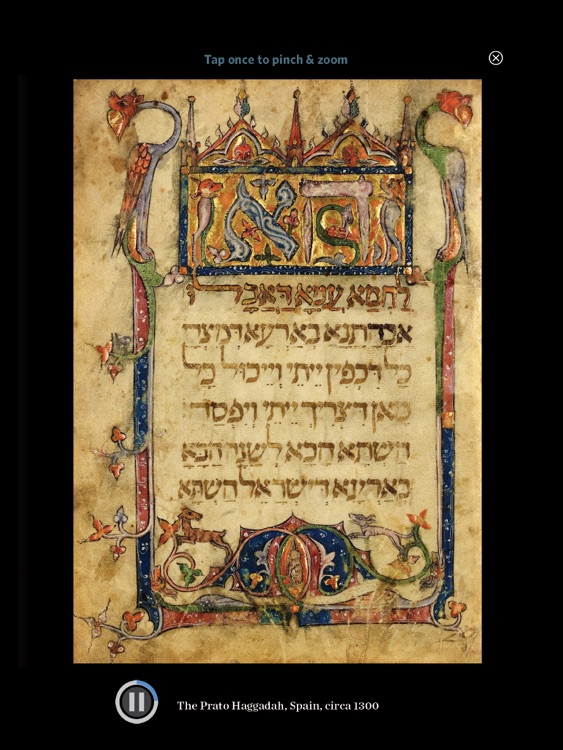 Tap once to pinch & zoom
הא
לחמא עניא דאכלו
אבהתנא בארעא דמצרים
כל דכפין ייתי וייכול כל
מאן דצריך ייתי ויפסח
השתא הכא לשנה הבאה
בארעא דישראל השתא
The Prato Haggadah, Spain, circa 1300